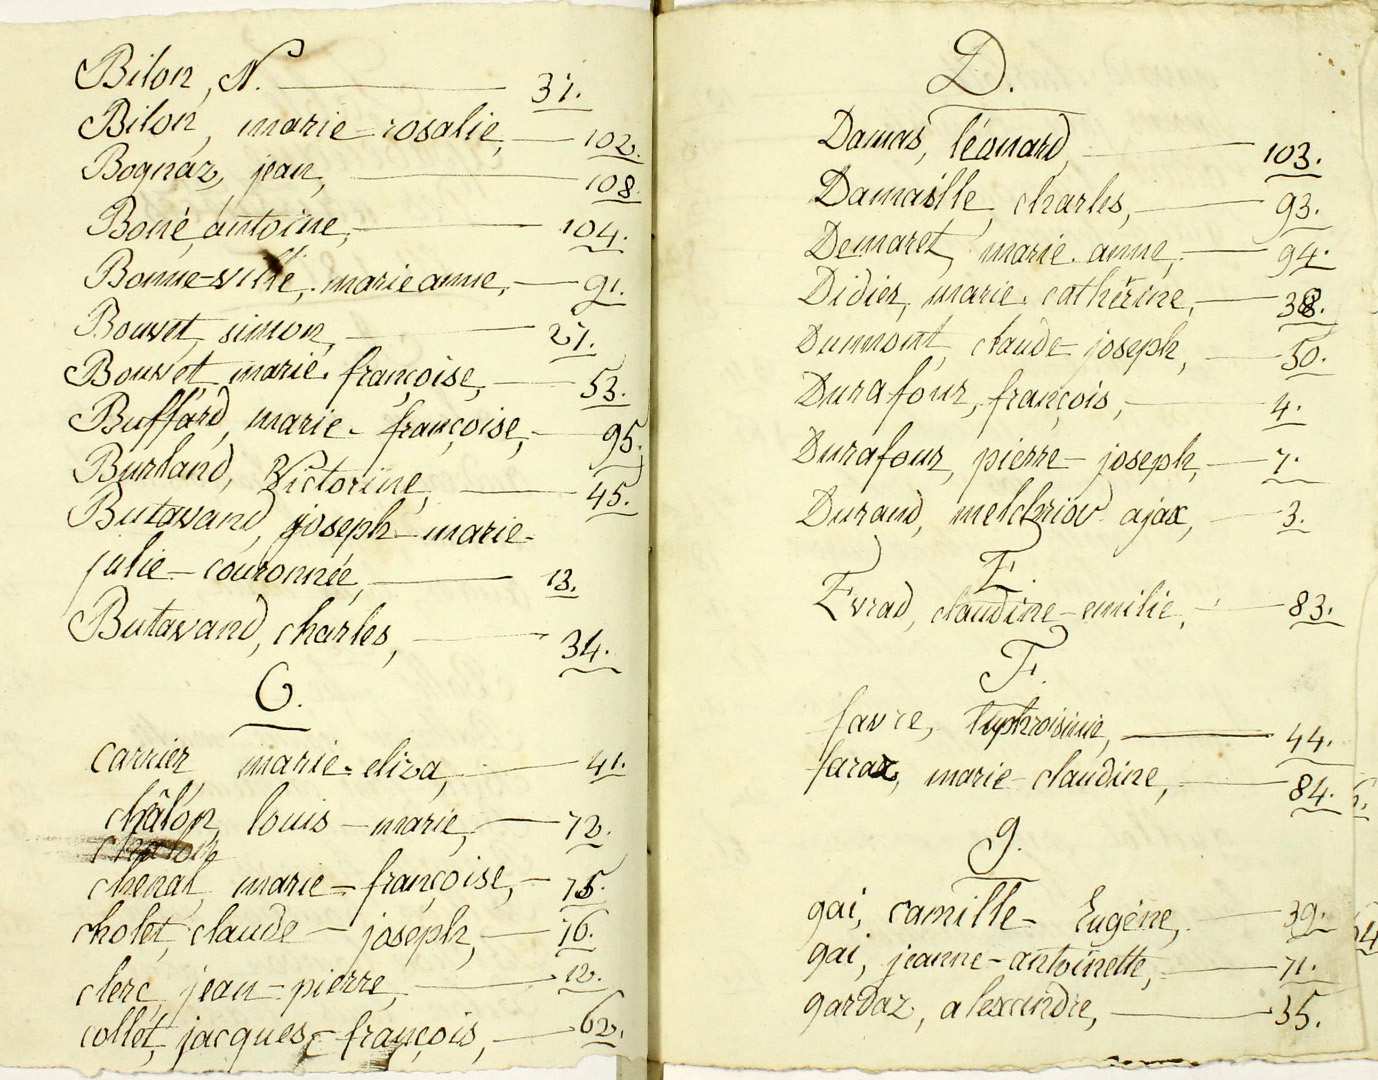 Bilon, N. 31.
Bilon, marie rosalie, 102.
Bognaz, jean, 108.
Boné, antoine, 104.
Bonne-ville, marie anne, 91.
Bouvet, simon, 21.
Bouvet, marie françoise, 53.
Buffard, marie-françoise, 95.
Burland, Victorine, 45.
Butavand, joseph-marie-
julie-couronnée, 13.
Butavand, charles, 34.
C.
carrier, marie-eliza, 41.
châlon, louis-marie, 72.
chenal, marie-françoise, 75.
cholet, claude-joseph, 16.
clerc, jean-pierre, 12.
collet, jacques-françois, 62.
D.
Damas, léonard, 103.
Damaille, charles, 93.
Demaret, marie anne, 94.
Didier, marie catherine, 38.
Dumont, claude joseph, 50.
Durafour, françois, 4.
Durafour, pierre-joseph, 7.
Durand, melchior ajax, 3.
E.
Evrad, claudine-emilie, 83.
F.
favre, 44.
farax, marie claudine, 84.
g.
gai, camille-Eugéne, 39.
gai, jeanne-antoinette, 71.
gardaz, alexandre, 35.